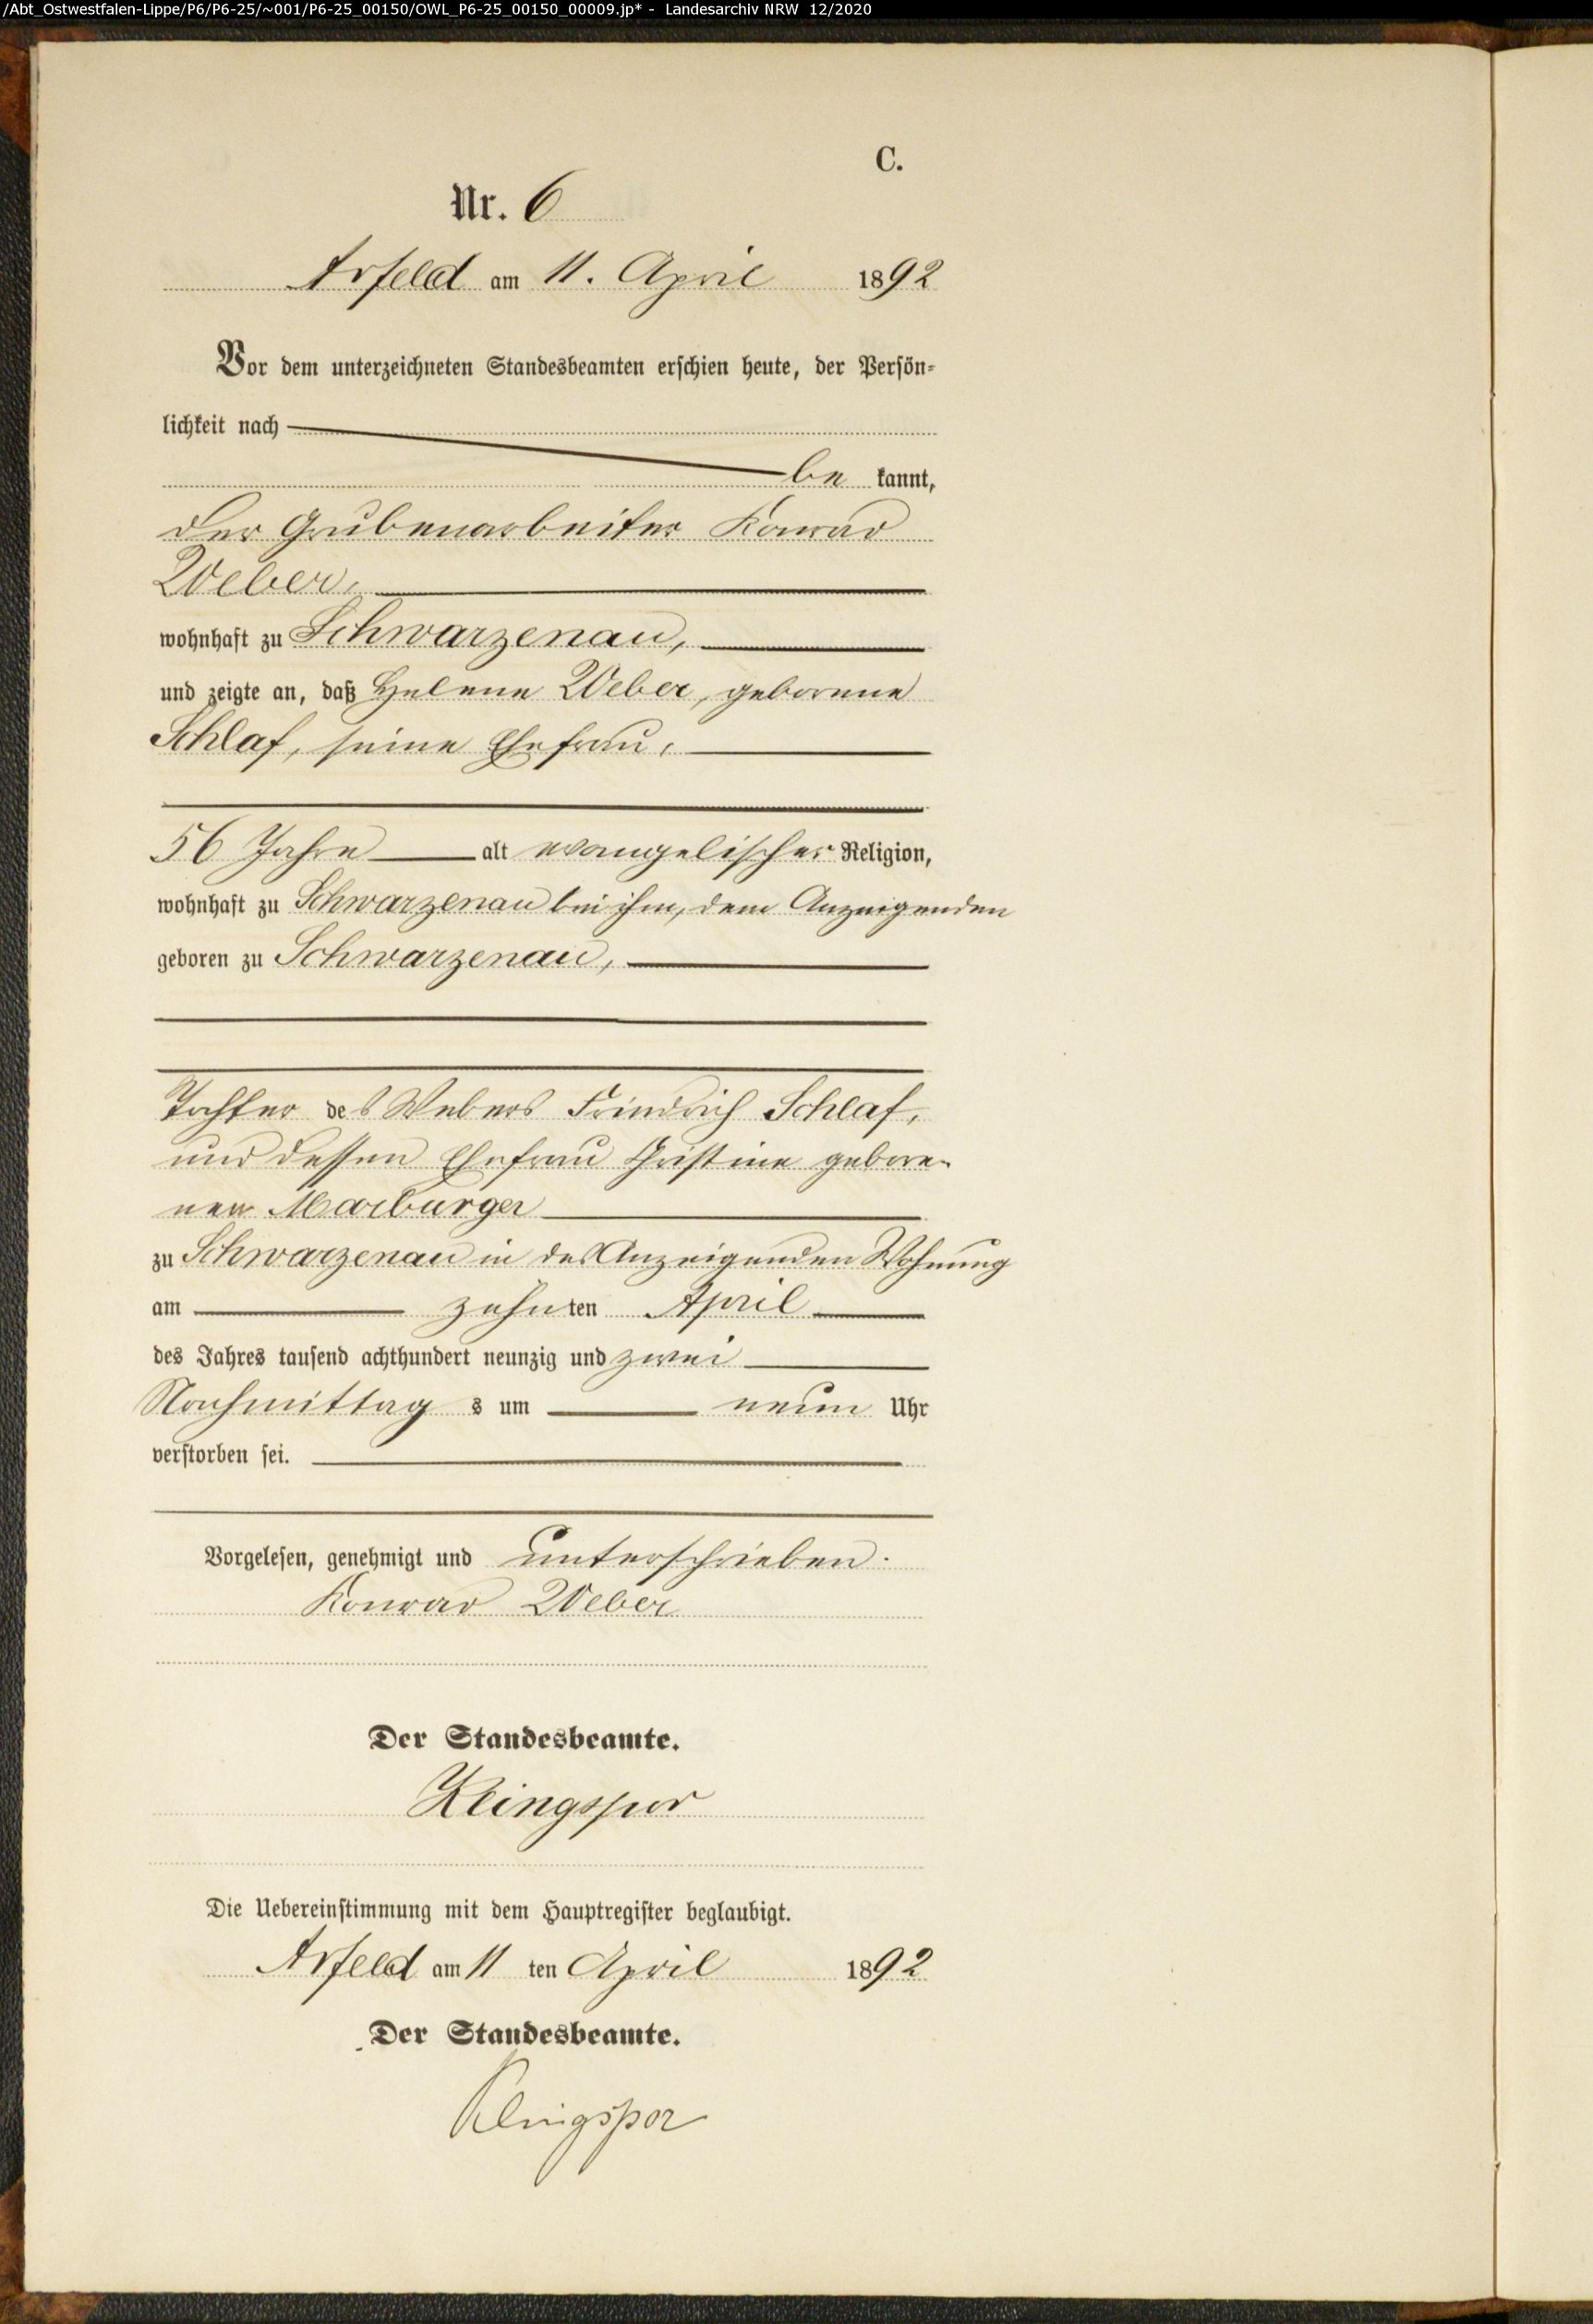 /Abt_Ostwestfalen-Lippe/P6/P6-25/~001/P6-25_00150/OWL_P6-25_00150_00009.jp* - Landesarchiv NRW 12/2020
C.
Nr. 6
Arfeld am 11. April 1892
Vor dem unterzeichneten Standesbeamten erschien heute, der Persön-
lichkeit nach
be kannt,
der Grubenarbeiter Konrad
Weber,
wohnhaft zu Schwarzenau,
und zeigte an, daß Helene Weber, geborene
Schlaf, seine Ehefrau,
56 Jahre alt evangelischer Religion,
wohnhaft zu Schwarzenau bei ihm, dem Anzeigenden
geboren zu Schwarzenau,
Tochter des Webers Friedrich Schlaf,
und dessen Ehefrau Christine gebore-
nen Marburger
zu Schwarzenau in des Anzeigenden Wohnung
am zehnten April
des Jahres tausend achthundert neunzig und zwei
Nachmittag s um neun Uhr
verstorben sei.
Vorgelesen, genehmigt und unterschrieben.
Konrad Weber
Der Standesbeamte.
Klingspor
Die Uebereinstimmung mit dem Hauptregister beglaubigt.
Arfeld am 11 ten April 1892
Der Standesbeamte.
Klingspor